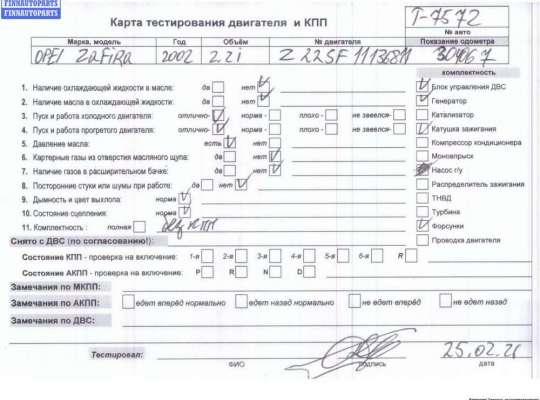 FINNAUTOPARTS
FINNAUTOPARTS
Карта тестирования двигателя и КПП
Т-7572
№ авто
Марка, модель Год Объём № двигателя Показание одометра
OPEl Zafira 2002 2.2i Z22SE
комплектность
1. Наличие охлаждающей жидкости в масле: да нет Блок управления ДВС
2. Наличие масла в охлаждающей жидкости: да нет Генератор
3. Пуск и работа холодного двигателя: отлично- норма - плохо - не завелся- Катализатор
4. Пуск и работа прогретого двигателя: отлично- норма - плохо - не завелся- Катушка зажигания
5. Давление масла: есть нет Компрессор кондиционера
6. Картерные газы из отверстия масляного щупа: да нет Моновпрыск
7. Наличие газов в расширительном бачке: да нет Насос г/у
8. Посторонние стуки или шумы при работе: да нет Распределитель зажигания
9. Дымность и цвет выхлопа: норма ТНВД
10. Состояние сцепления: норма Турбина
11. Комплектность : полная без КПП Форсунки
Проводка двигателя
Снято с ДВС (по согласованию!):
Состояние КПП - проверка на включение: 1-я 2-я 3-я 4-я 5-я 6-я R
Состояние АКПП - проверка на включение: P R N D
Замечания по МКПП:
Замечания по АКПП: едет вперёд нормально едет назад нормально не едет вперёд не едет назад
Замечания по ДВС:
Тестировал: ФИО подпись 25.02.21 дата